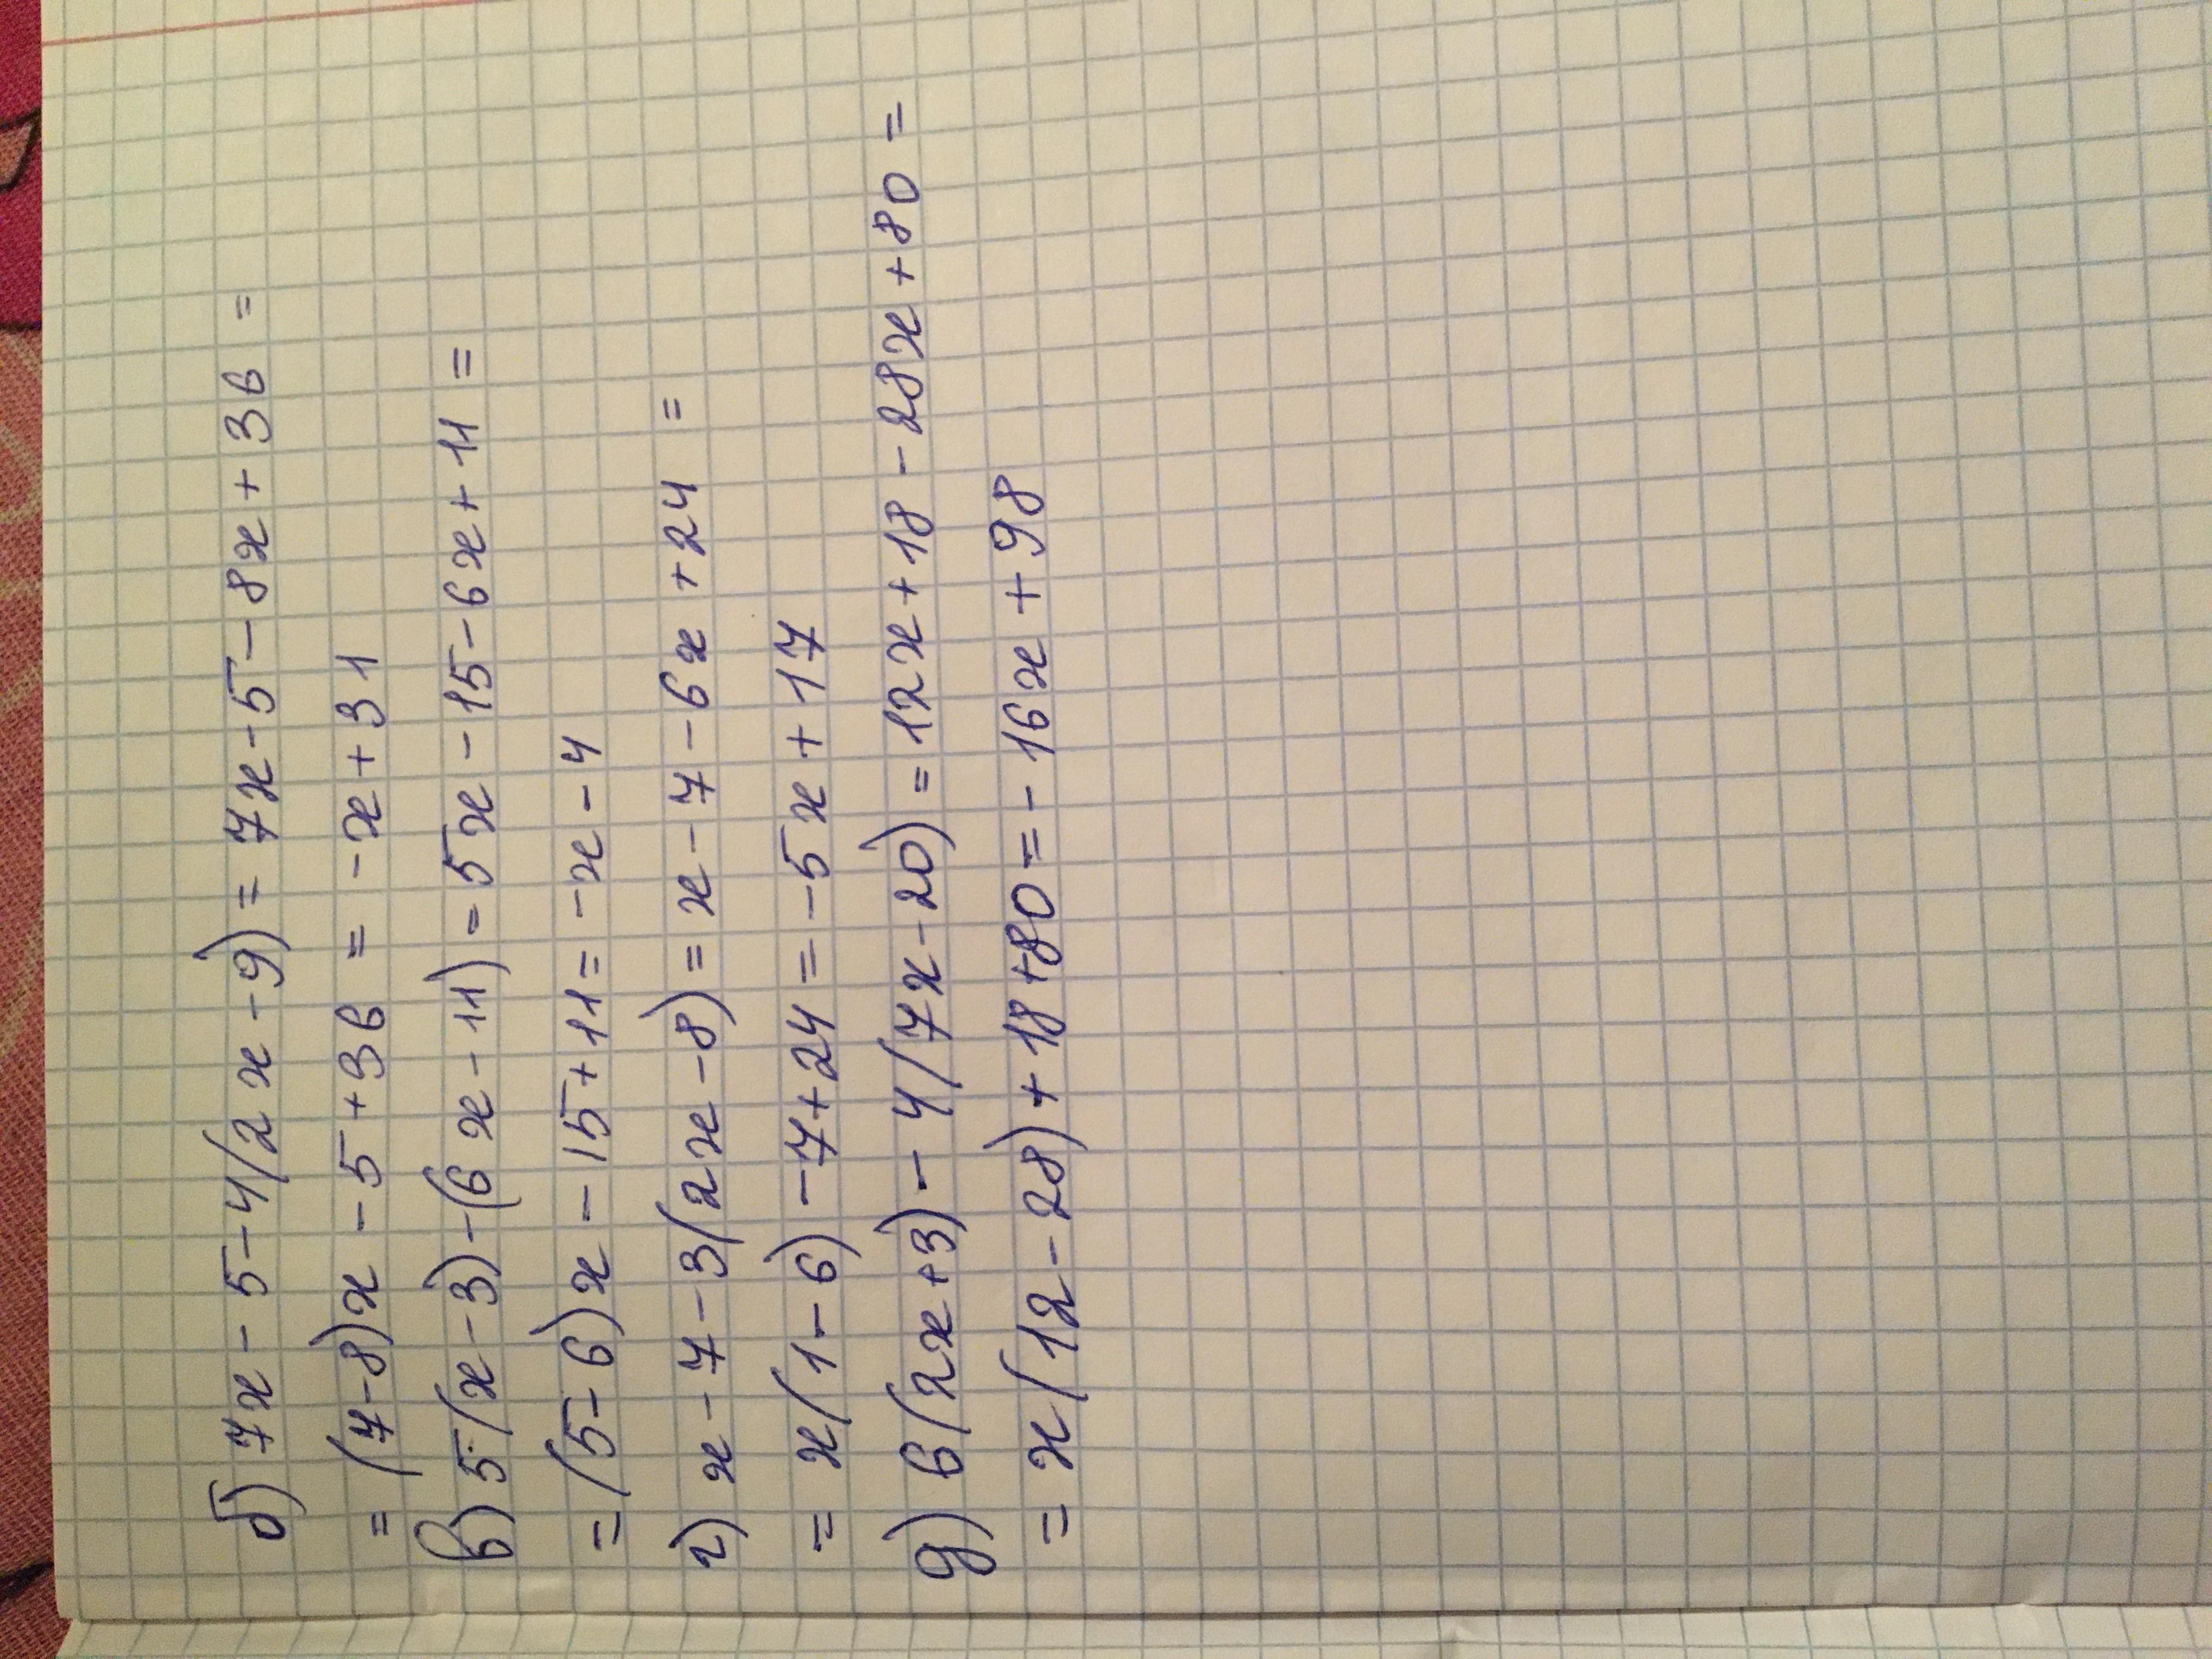 б) 7x - 5 - 4(2x - 9) = 7x - 5 - 8x + 36 =
= (7-8)x - 5 + 36 = -x + 31
в) 5(x - 3) - (6x - 11) = 5x - 15 - 6x + 11 =
= (5 - 6)x - 15 + 11 = -x - 4
г) x - 7 - 3(2x - 8) = x - 7 - 6x + 24 =
= x(1 - 6) - 7 + 24 = -5x + 17
д) 6(2x+3) - 4(7x - 20) = 12x + 18 - 28x + 80 =
= x(12 - 28) + 18 + 80 = - 16x + 98